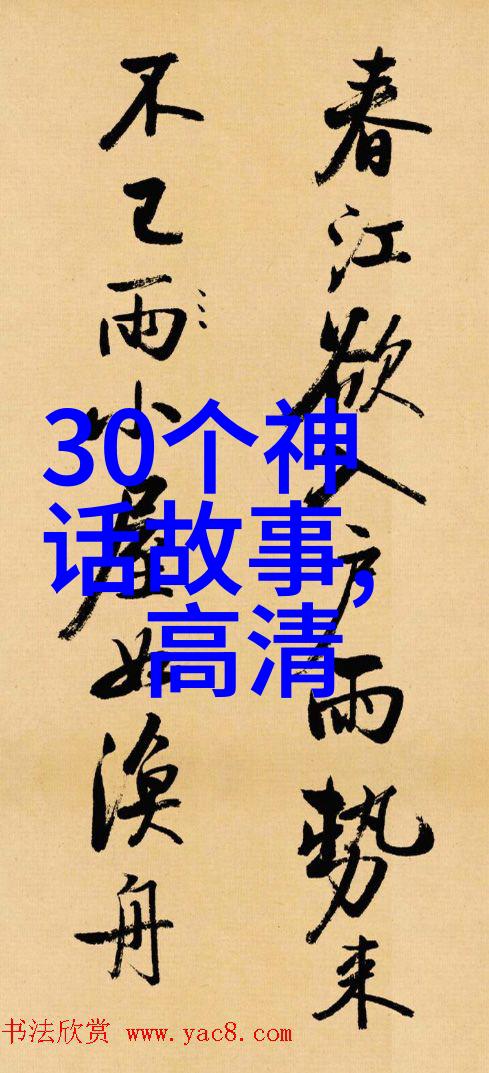 春江欲入户雨势来
不已雨小屋如渔舟
30个神
话故事,
高清
书法欣赏 www.yac8.com